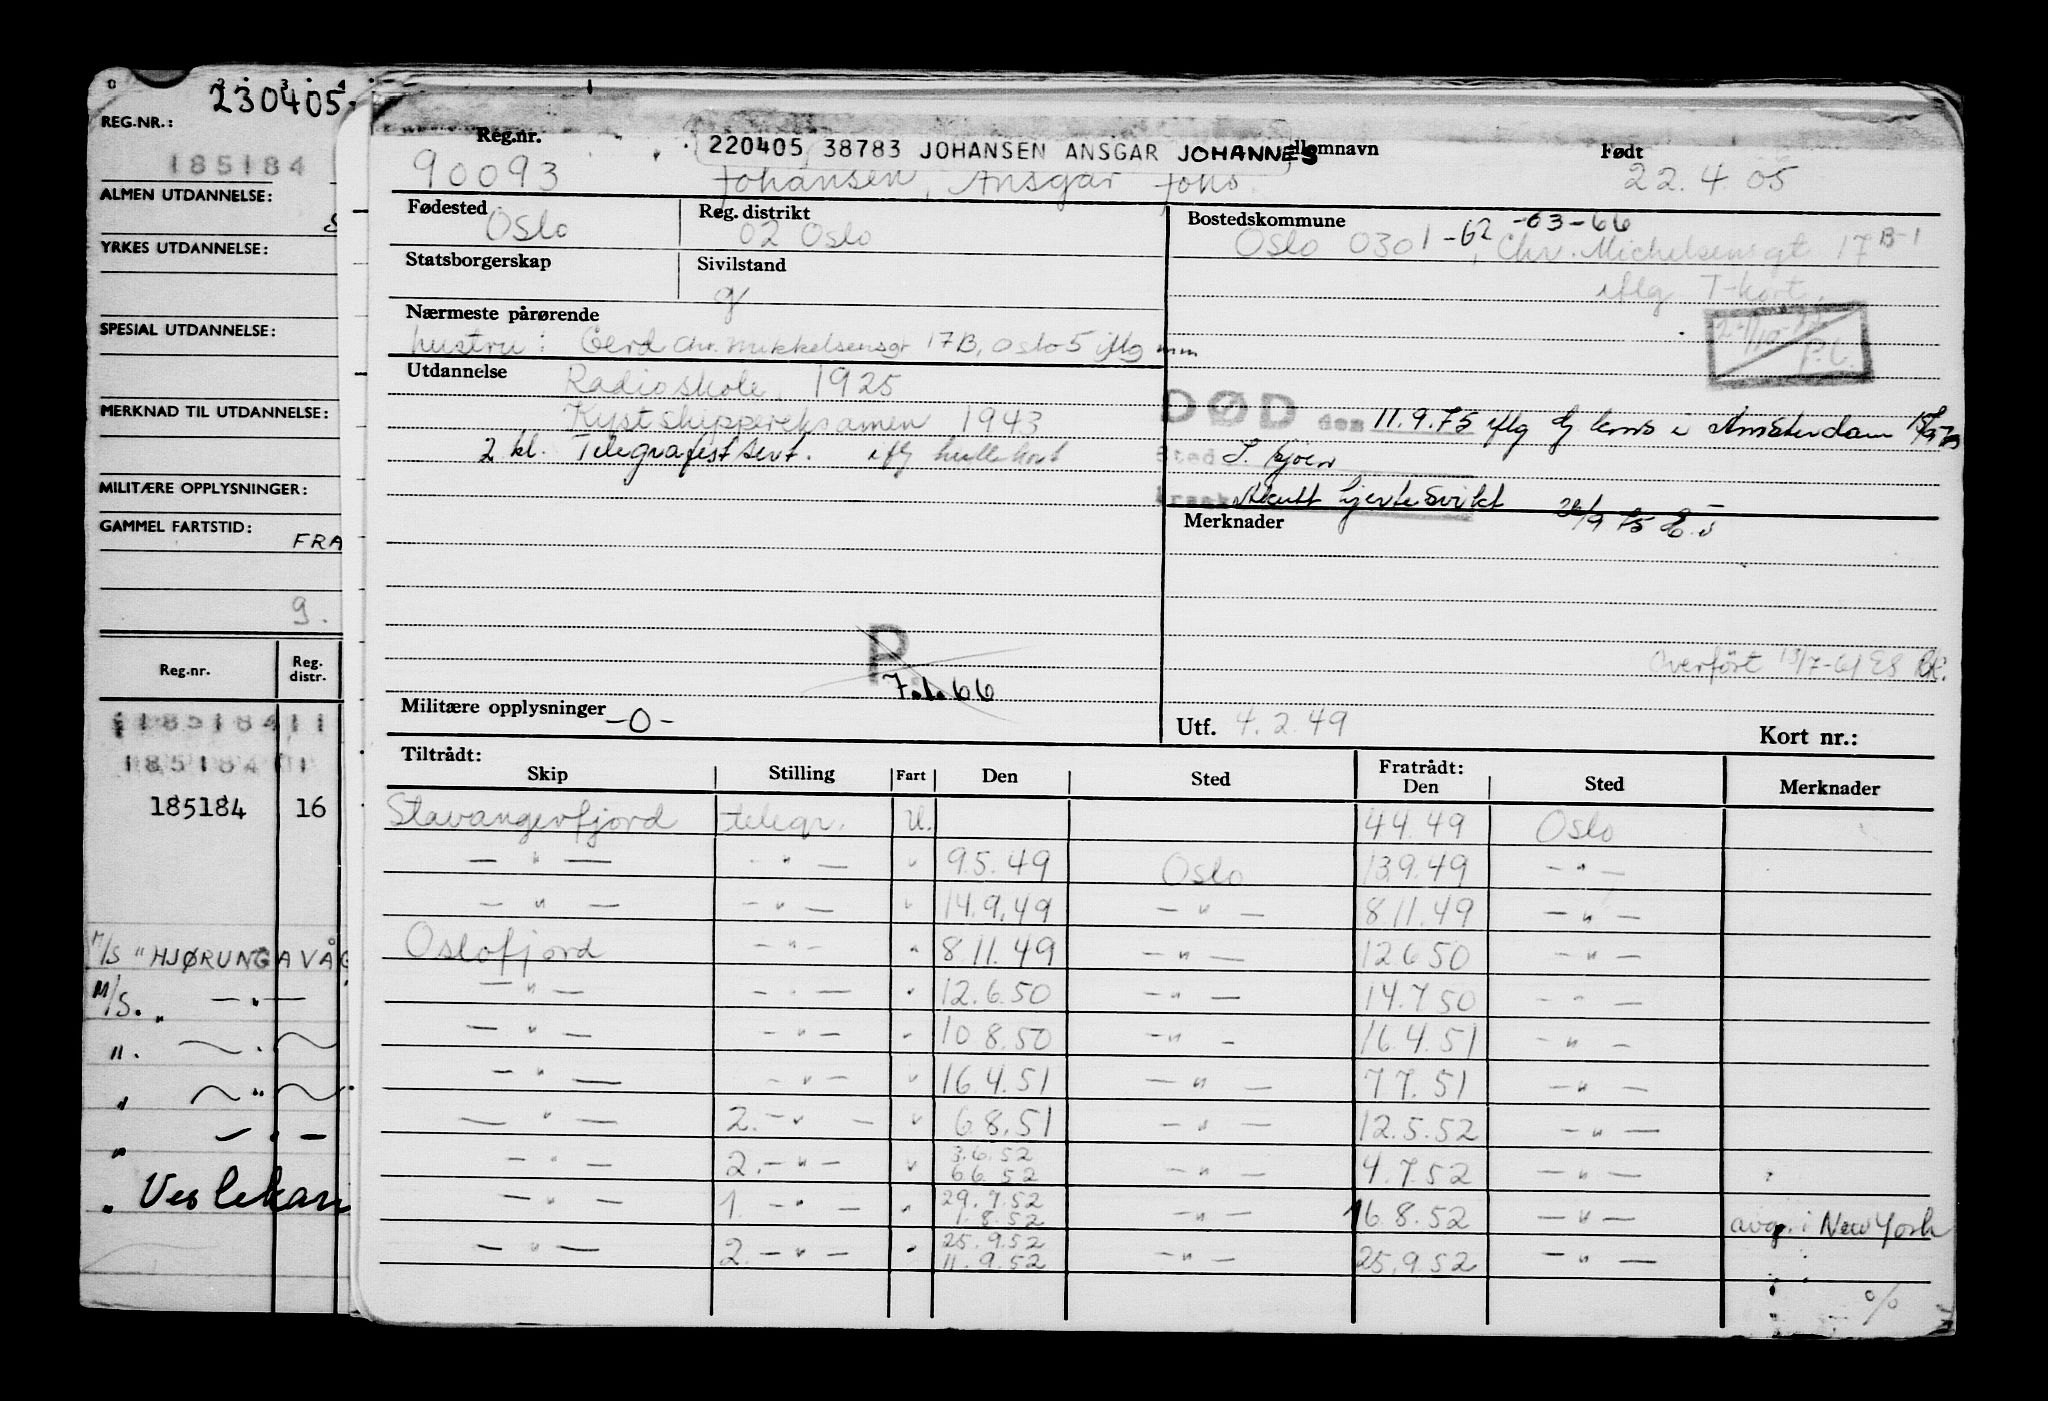 230405
REG.NR.:
185184
ALMEN UTDANNELSE:
YRKES UTDANNELSE:
SPESIAL UTDANNELSE:
MERKNAD TIL UTDANNELSE:
MILITÆRE OPPLYSNINGER:
GAMMEL FARTSTID:
FRA
9.
Reg.nr. Reg. distr.
185184 11
185184 11
185184 16
M/S "HJØRUNGAVÅG
M/S. „ — " —
". — " —
„ — " —
„ — " —
„ Veslekari
Reg.nr. 220405 38783 JOHANSEN ANSGAR JOHANNES llomnavn Født
90093 Johansen, Ansgar Johs. 22.4.05
Fødested Oslo Reg. distrikt 02 Oslo Bostedskommune Oslo 0301-62-63-66
, Chr. Michelsensgt 17 B-1
Statsborgerskap Sivilstand g
iflg T-kort
Nærmeste pårørende
hustru: Gerd Chr. Mikkelsensgt 17B, Oslo 5 iflg mm
Utdannelse Radioskole 1925
Kystskippereksamen 1943
2 kl. Telegrafistsert. iflg hullekort
DØD den 11.9.75 iflg kons i Amsterdam
Sted Sjøen
Årsak Akutt hjertesvikt
Merknader 26/9 75
Overført 13/7-61 ES
P
7.1.66
Militære opplysninger -0-
Utf. 4.2.49 Kort nr.:
Tiltrådt: Skip Stilling Fart Den Sted Fratrådt: Den Sted Merknader
Stavangerfjord telegr. U. 4.4.49 Oslo
— " — — " — " 9.5.49 Oslo 13.9.49 — " —
— " — — " — " 14.9.49 — " — 8.11.49 — " —
Oslofjord — " — " 8.11.49 — " — 12.6.50 — " —
— " — — " — " 12.6.50 — " — 14.7.50 — " —
— " — — " — " 10.8.50 — " — 16.4.51 — " —
— " — — " — " 16.4.51 — " — 7.7.51 — " —
— " — 2. — " — " 6.8.51 — " — 12.5.52 — " —
— " — 2. — " — " 3.6.52 6.6.52 — " — 4.7.52 — " —
— " — 1. — " — " 29.7.52 1.8.52 — " — 16.8.52 — " — avg. i New York
— " — 2. — " — " 25.9.52 11.9.52 — " — 25.9.52 — " —
%